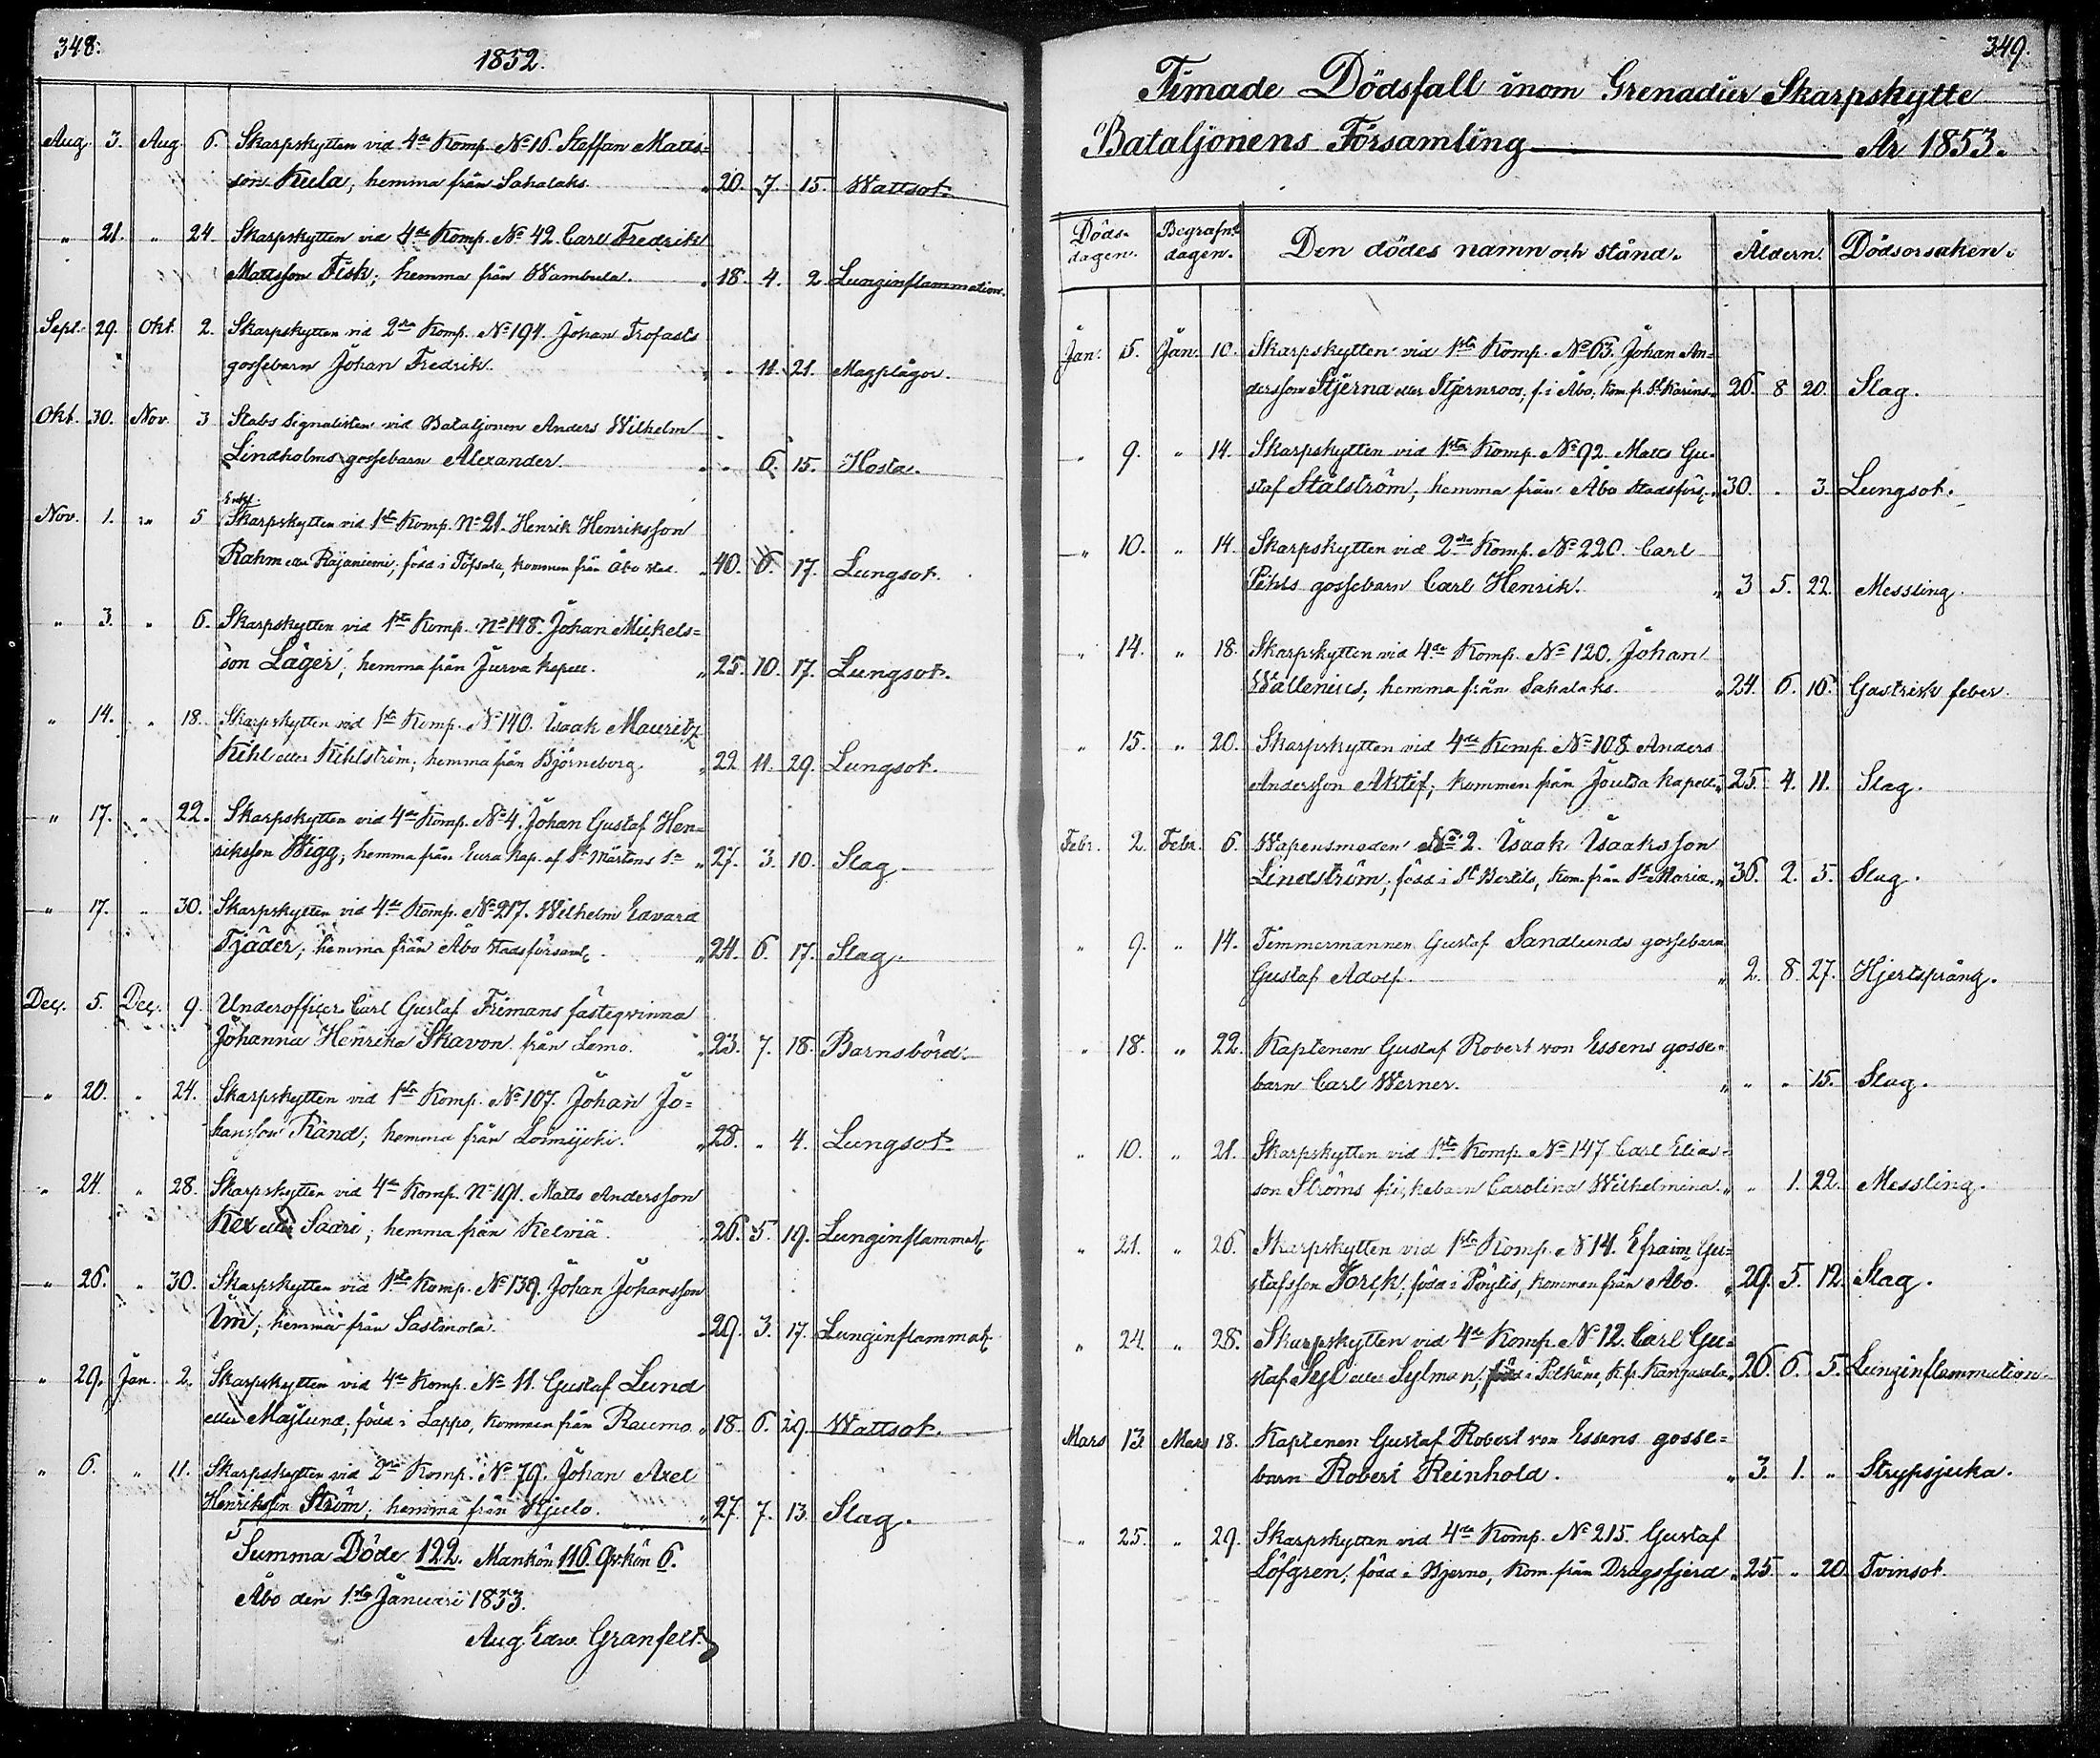 348.
1852.
Aug. 3. Aug. 6. Skarpskytten vid 4de Komp. No 16. Steffan Matts=
son Kula, hemma från Sahalaks. " 20. 7. 15. Wattsot.
" 21. " 24. Skarpskytten vid 4de Komp. No 42. Carl Fredrik
Mattsson Fisk; hemma från Wambula. " 18. 4. 2 Lunginflammation.
Sept. 29. Okt. 2. Skarpskytten vid 2dra Komp. No 194. Johan Trofasts
gossebarn Johan Fredrik. " " 11. 21. Magplågor.
Okt. 30. Nov. 3 Stabs Signalisten vid Bataljonen Anders Wilhelm
Lindholms gossebarn Alexander. " " 6. 15. Hosta.
Enkl.
Nov. 1. " 5 Skarpskytten vid 1sta Komp. No 21. Henrik Henriksson
Rahm eller Rajaniemi; född i Töfsala, kommen från Åbo stad. " 40. 6. 17. Lungsot.
" 3. " 6. Skarpskytten vid 1sta Komp. No 148. Johan Mickels=
son Läger; hemma från Jurva kapell. " 25. 10. 17. Lungsot.
" 14. " 18. Skarpskytten vid 1sta Komp. No 140. Isaak Mauritz
Kihl eller Kihlström; hemma från Björneborg. " 22 11. 29. Lungsot.
" 17. " 22. Skarpskytten vid 4de Komp. No 4. Johan Gustaf Hen=
riksson Wigg; hemma från Eura Kap. af St Mårtens Sn " 27. 3. 10. Slag.
" 17. " 30. Skarpskytten vid 4de Komp. No 217. Wilhelm Edvard
Tjäder; hemma från Åbo stadsförsaml. " 24. 6. 17. Slag.
Dec. 5. Dec. 9. Underofficer Carl Gustaf Frimans fästeqvinna
Johanna Henrika Skavon från Lemo. " 23. 7. 18. Barnsbörd.
" 20. " 24. Skarpskytten vid 1sta Komp. No 107. Johan Jo=
hansson Rand; hemma från Loimijoki. " 28. " 4. Lungsot.
" 24. " 28. Skarpskytten vid 4de Komp. No 191. Matts Andersson
Kex eller Saari; hemma från Kelviä. " 26. 5. 19. Lunginflammat.
" 26. " 30. Skarpskytten vid 1sta Komp. No 139. Johan Johansson
Im; hemma från Sastmola. " 29. 3. 17. Lunginflammat.
" 29. Jan. 2. Skarpskytten vid 4de Komp. No 11. Gustaf Lund
eller Majlund; född i Lappo, kommen från Raumo. " 18. 6. 29. Wattsot.
" 6. " 11. Skarpskytten vid 2dra Komp. No 79. Johan Axel
Henriksson Ström; hemma från Kjulo. " 27. 7. 13. Slag.
Summa Döde 122. Mankön 116. Qv:kön 6.
Åbo den 1sta Januari 1853.
Aug. Edw. Granfelt.
349.
Timade Dödsfall inom Grenadier Skarpskytte
Bataljonens Församling År 1853.
Döds- dagen. Begrafn:s dagen. Den dödes namn och stånd. Åldern. Dödsorsaken.
Jan. 5. Jan. 10. Skarpskytten vid 1sta Komp. No 63. Johan An=
dersson Stjerna eller Stjernroos; f. i Åbo, kom. fr. St Karins " 26. 8 20. Slag.
" 9. " 14. Skarpskytten vid 1sta Komp. No 92. Matts Gu=
staf Stålström; hemma från Åbo stadsförs. " 30. " 3. Lungsot.
" 10. " 14. Skarpskytten vid 2dra Komp. No 220. Carl
Pihls gossebarn Carl Henrik. " 3 5. 22. Messling.
" 14. " 18. Skarpskytten vid 4de Komp. No 120. Johan
Wallenius; hemma från Sahalaks. " 24. 6. 16. Gastrisk feber.
" 15. " 20. Skarpskytten vid 4de Komp. No 108. Anders
Andersson Aktif; kommen från Joutsa kapell. " 25. 4. 11. Slag.
Febr. 2. Febr. 6. Wapensmeden No 2. Isaak Isaaksson
Lindström; född i St Bertils, kom. från St Maria. " 36. 2. 5. Slag.
" 9. " 14. Timmermannen Gustaf Sandlunds gossebarn
Gustaf Adolf. " 2. 8. 27. Hjertsprång.
" 18. " 22. Kaptenen Gustaf Robert von Essens gosse=
barn Carl Werner. " " " 15. Slag.
" 10. " 21. Skarpskytten vid 1sta Komp. No 147 Carl Elias=
son Ströms flickebarn Carolina Wilhelmina. " " 1. 22. Messling.
" 21. " 26. Skarpskytten vid 1sta Komp. No 14. Efraim Gu=
stafsson Torck; född i Pöytis, kommen från Åbo. " 29. 5. 12. Slag.
" 24. " 28. Skarpskytten vid 4de Komp. No 12. Carl Gu=
staf Syl eller Sylman; född i Pelkäne, k. fr. Kangasala. " 26. 6. 5. Lunginflammation.
Mars 13. Mars 18. Kaptenen Gustaf Robert von Essens gosse=
barn Robert Reinhold. " 3. 1. " Strypsjuka.
" 25. " 29. Skarpskytten vid 4de Komp. No 215. Gustaf
Löfgren; född i Bjerno, kom. från Dragsfjerd " 25. " 20. Tvinsot.